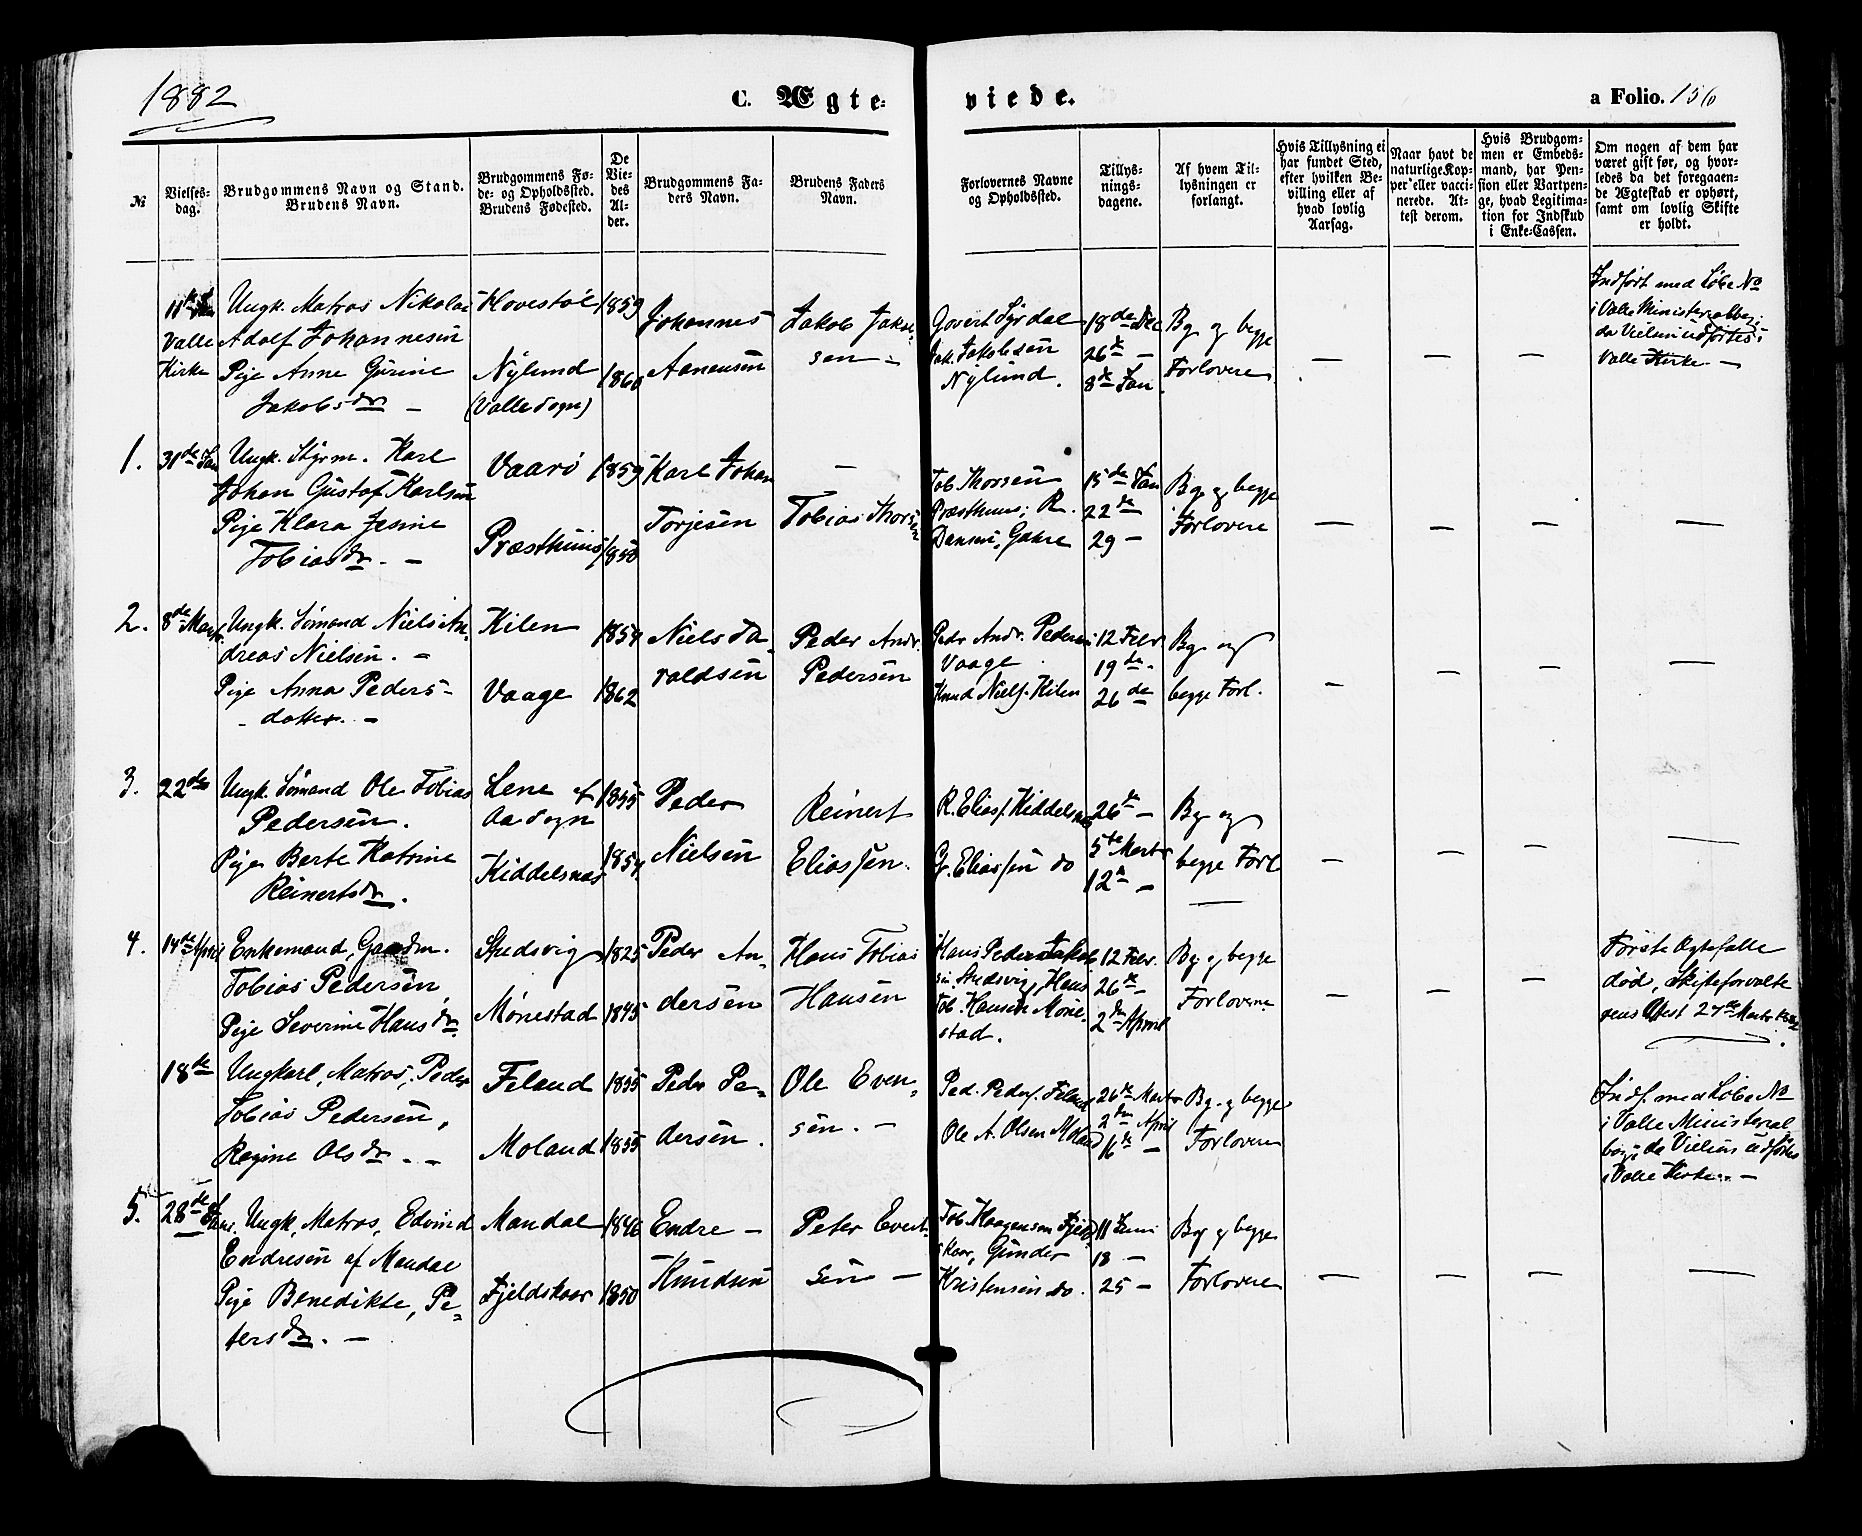 1882
C. Ægte-
viede.
a Folio. 156
№
Vielses-
dag.
Brudgommens Navn og Stand.
Brudens Navn.
Brudgommens Fø-
de- og Opholdssted.
Brudens Fødested.
De
Vie-
des
Al-
der.
Brudgommens Fa-
ders Navn.
Brudens Faders
Navn.
Forlovernes Navne
og Opholdssted.
Tillys-
nings-
dagene.
Af hvem Til-
lysningen er
forlangt.
Hvis Tillysning ei
har fundet Sted,
efter hvilken Be-
villing eller af
hvad lovlig
Aarsag.
Naar havt de
naturlige Kop-
per eller vacci-
nerede. At-
test derom.
Hvis Brudgom-
men er Embeds-
mand, har Pen-
sion eller Vartpen-
ge, hvad Legitima-
tion for Indskud
i Enke-Cassen.
Om nogen af dem har
været gift før, og hvor-
ledes da det foregaaen-
de Ægteskab er ophørt,
samt om lovlig Skifte
er holdt.
11te
Valle
Kirke
Ungk. Matros Nikolai
Adolf Johannesen
Pige Anne Gurine
Jakobsdr. –
Hovestøl
Nylund
(Valle Sogn)
1859
1860
Johannes
Aanensen
Jakob Jakob-
sen –
Govert Syrdal
Jak. Jakobsen
Nylund.
18de Dec
26de –
8de Jan
Bg. og begge
Forlovere
– – –
Indført med Løbe No
i Valle Ministerialbog;
da Vielsen udførtes i
Valle Kirke –
1.
31de Jan
Ungk. Styrm. Karl
Johan Gustaf Karlsen
Pige Klara Jesine
Tobiasdr. –
Vaarø
Præsthuus
1859
1850
Karl Johan
Torjesen
–
Tobias Thorsen
Tob. Thorsen
Præsthuus; R.
Dansen, Gahre
15de Jan
22de
29 –
Bg. og begge
Forlovere
– – – –
2.
8de Marts
Ungk. Sømand Niels An-
dreas Nielsen. –
Pige Anna Peders-
- datter. –
Kilen
Vaage
1859
1862
Niels Ta-
raldsen
Peder Andr.
Pedersen
Pedr Andr. Pedersen
Vaage
Knud Niels. Kilen
12 Febr
19de –
26de
Bg. og
begge Forl.
– – – –
3.
22de
Ungk. Sømand Ole Tobias
Pedersen.
Pige Berte Katrine
Reinertsdr.
Lene af
Aa Sogn
Kiddelsnæs
1855
1857
Peder
Nielsen
Reinert
Eliassen.
R. Elias. Kiddelsnæs
G. Eliassen do
26de –
5te Marts
12te –
Bg. og
begge Forl
– – – –
4.
14de April
Enkemand, Gaardm.
Tobias Pedersen
Pige Severine Hansdr.
Spedsvig
Mønestad
1825
1845
Peder An-
dersen
Hans Tobias
Hansen
Hans Peder Jakob
sen, Spedsvig, Hans
Tob. Hansen Møne-
stad.
12 Febr.
26de –
2den April
Bg. og begge
Forlovere
– – –
Første Ægtefælle
død, Skifteforvalte
rens Attest 27de Marts 1882
18de
Ungkarl, Matros, Peder
Tobias Pedersen,
Regine Olsdr. –
Feland
Moland
1855
1855
Peder Pe-
dersen.
Ole Even-
sen. –
Ped. Peders. Feland
Ole A. Olsen Moland
26de Marts
2den April
16de –
Bg. og begge
Forlovere
Indf. med Løbe No
i Valle Ministerial
bog, da Vielsen udførtes
i Valle Kirke. –
5.
28de
Ungk. Matros, Edvind
Endresen af Mandal
Pige Benedikte, Pe-
tersdr. –
Mandal
Fjeldskaar
1846
1850
Endre –
Knudsen
Peter Evert-
sen –
Tob. Haagensen Fjeld-
skaar, Gunder
Kristensen do.
11 Juni
18 –
25 –
Bg. og begge
Forlovere
– – – –